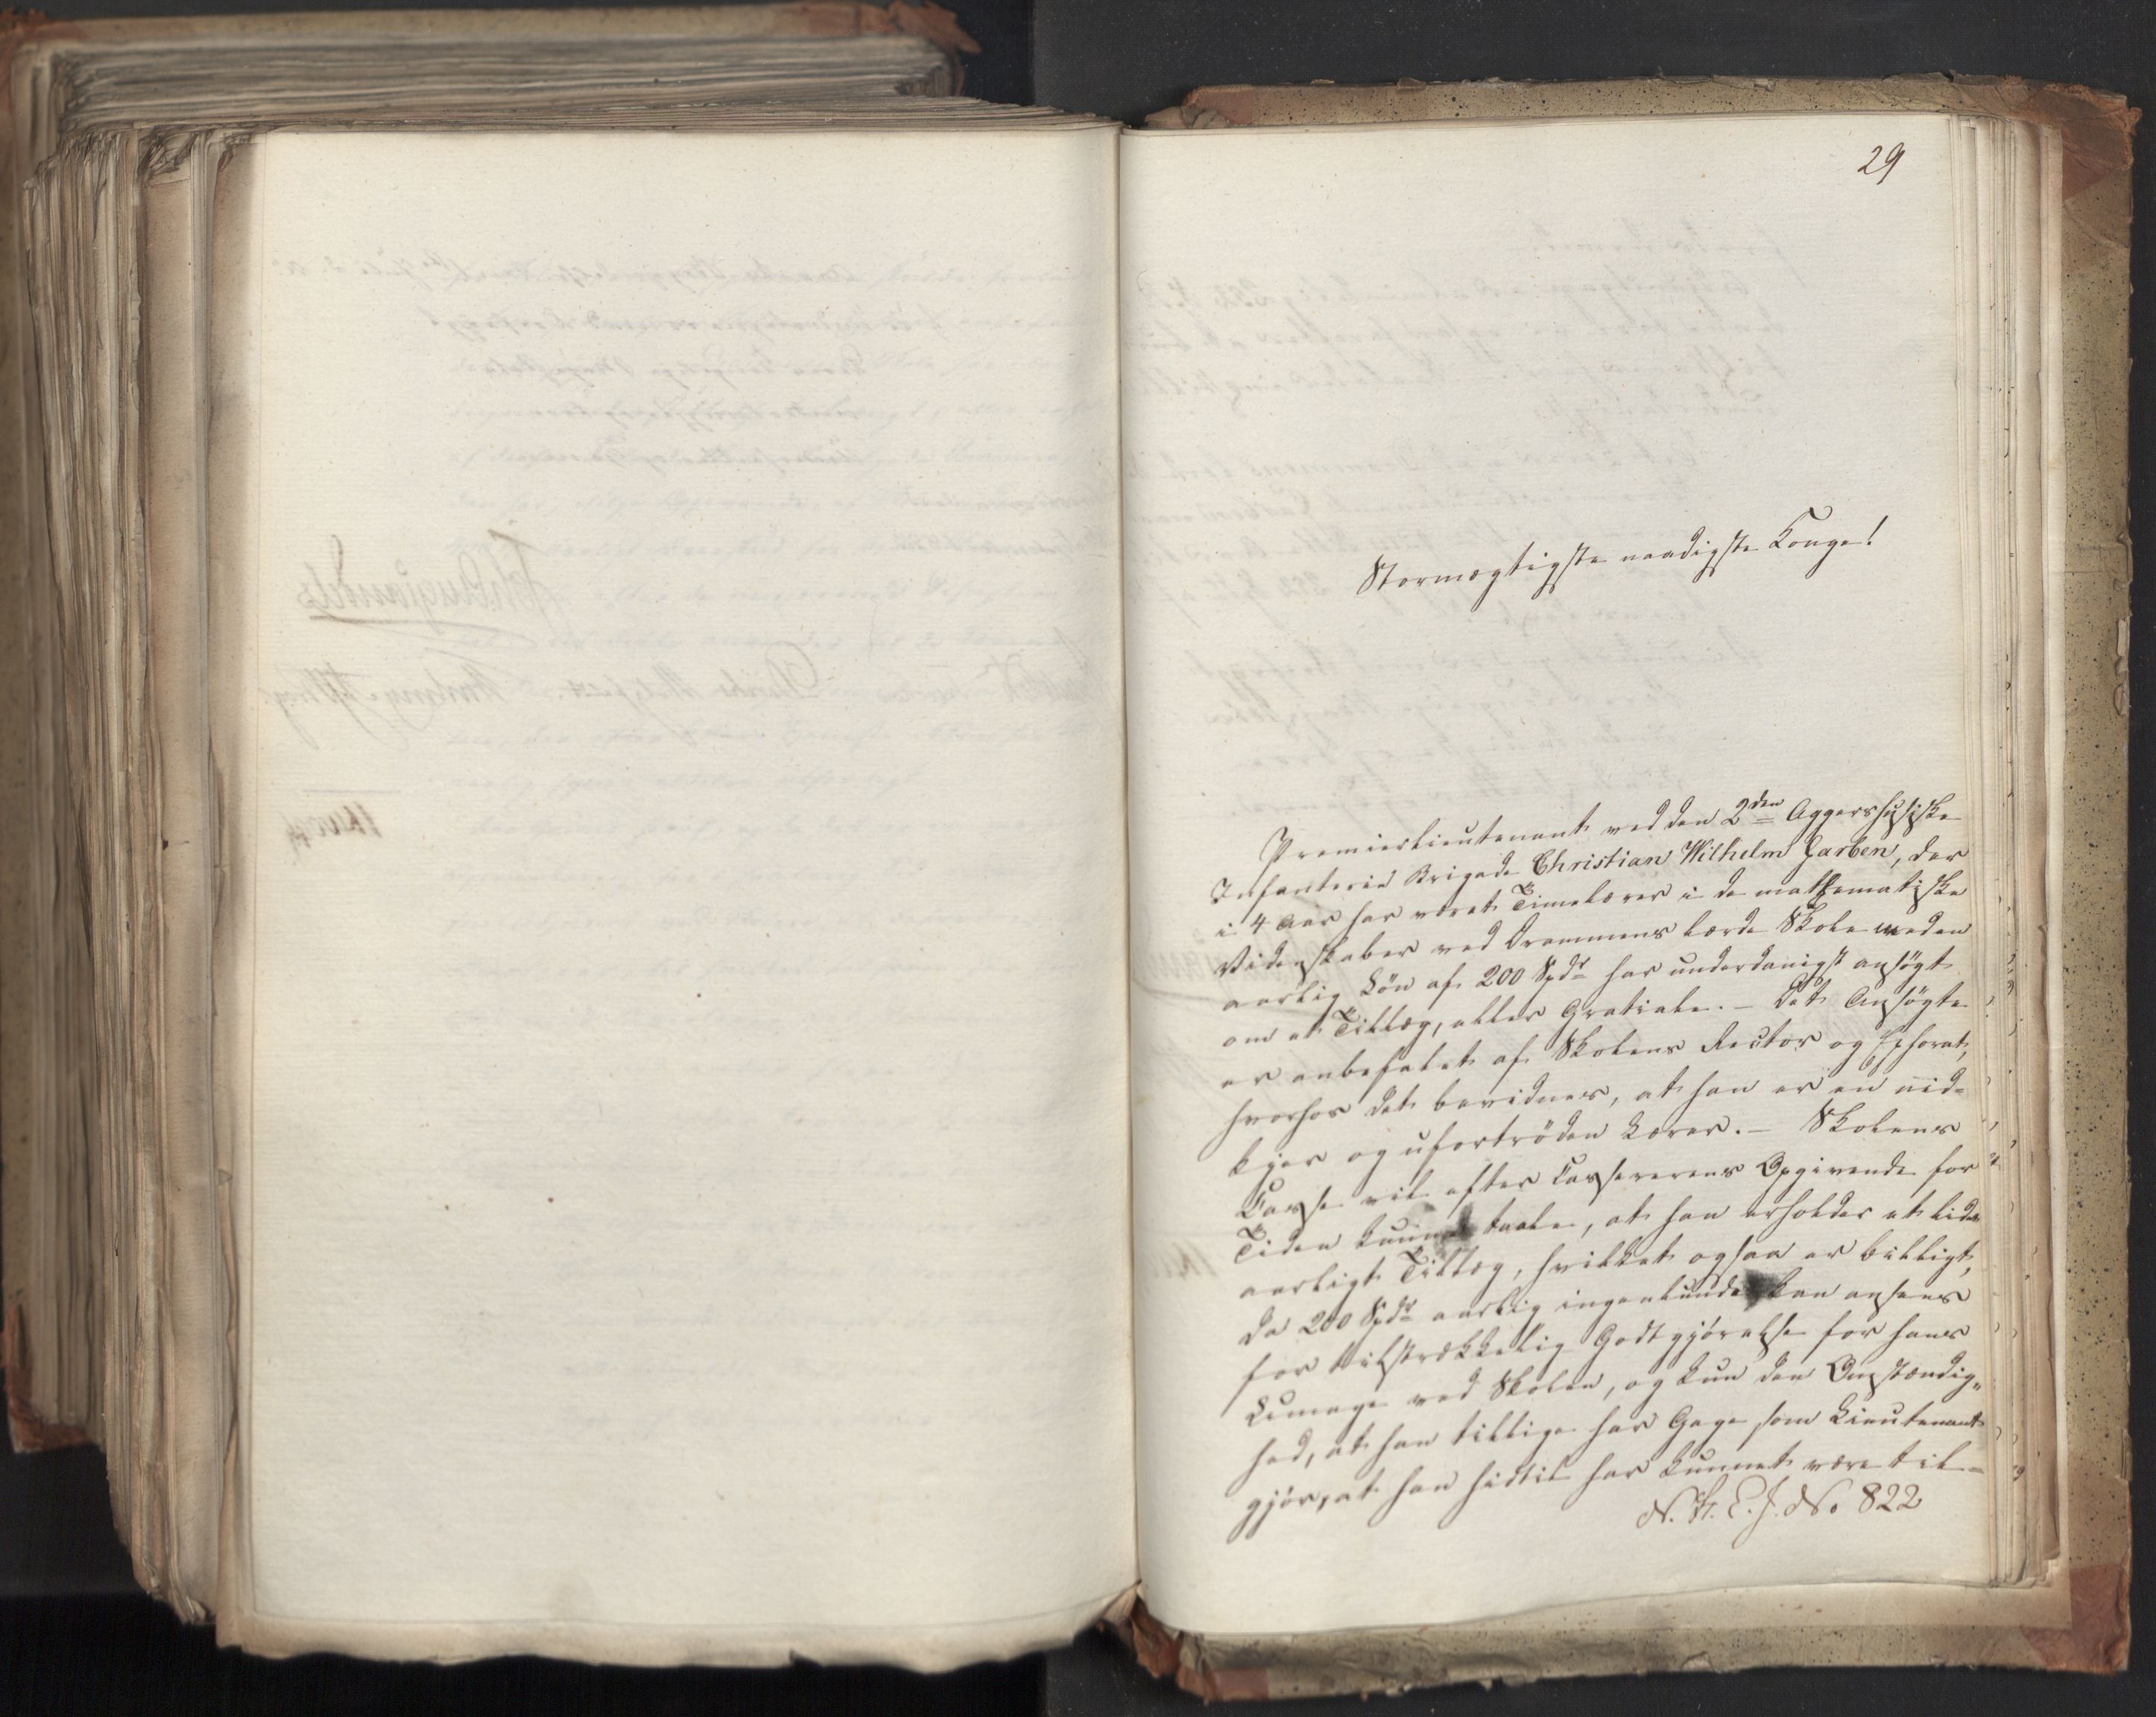 29
Stormægtigste naadigste Konge!
Premierlieutenant ved den 2den Aggershusiske
Infanterie Brigade Christian Wilhelm Garben, der
i 4 Aar har været Timelærer i de mathematiske
Videnskaber ved Drammens lærde Skole med en
aarlig Løn af 200 Spdr har underdanigst ansøgt
om et Tillæg, eller Gratiale. – Det Ansøgte
er anbefalet af Skolens Rector og Ephorat,
hvorhos det bevidnes, at han er en nid-
kjær og ufortrøden Lærer. – Skolens
Casse vil efter Cassererens Opgivende for
Tiden kunne taale, at han erholder et lidet
aarligt Tillæg, hvilket ogsaa er billigt,
da 200 Spdr aarlig ingenlunde kan ansees
for tilstrækkelig Godtgjörelse for hans
Umage ved Skolen, og kun den Omstændig-
hed, at han tillige har Gage som Lieutenant
gjör, at han hidtil har kunnet være til-
N. K. E. J. No 822